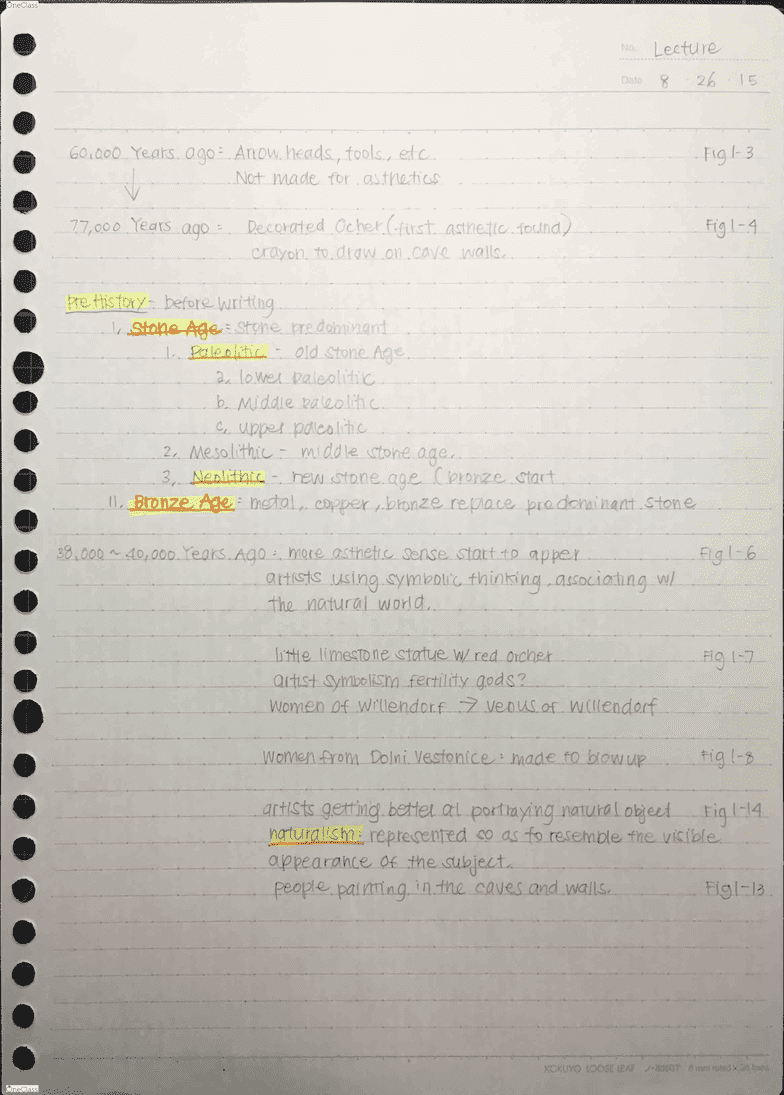 OneClass
No. Lecture
Date 8 · 26 · 15
60,000 Years ago: Arrow heads, tools, etc Fig 1-3
Not made for asthetics
77,000 Years ago: Decorated Ocher (first asthetic found) Fig 1-4
crayon to draw on cave walls.
Pre History - before writing
I. Stone Age: stone predominant
1. Paleolitic - old stone Age
a. lower paleolitic
b. Middle paleolitic
c. upper paleolitic
2. Mesolithic - middle stone age.
3. Neolithic - new stone age (bronze start
II. Bronze Age: metal, copper, bronze replace predominant stone
38,000 ~ 40,000 Years Ago: more asthetic sense start to apper Fig 1-6
artists using symbolic thinking, associating w/
the natural world.
little limestone statue w/ red orcher Fig 1-7
artist symbolism fertility gods?
Women of Willendorf → venus of willendorf
Women from Dolni Vestonice: made to blow up Fig 1-8
artists getting better at portraying natural object Fig 1-14
naturalism: represented so as to resemble the visible
appearance of the subject.
people painting in the caves and walls. Fig 1-13
KOKUYO LOOSE-LEAF 8 mm ruled × 36 lines
OneClass